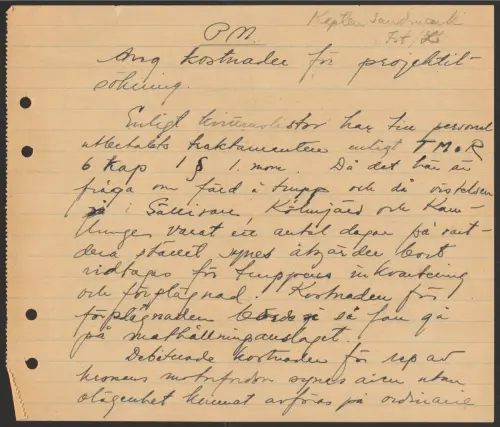 Kapten Sandmark
Fst/
P.M.
Ang kostnader för projektil-
sökning.
Enligt kvittenslistor har till personal
utbetalats traktamenten enligt TMoR
6 Kap 1 § 1. mom. Då det här är
fråga om färd i trupp och då vistelsen
i Gällivare, Kölmjärv och
varit ett antal dagar på vart-
dera stället synes åtgärder bort
vidtagas för truppens inkvartering
och förplägnad. Kostnaden för
förplägnaden så fan gå
på mathållningsanslaget.
Debiterade kostnader för rep av
kronans motorfordon synes även utan
olägenhet kunnat avföras på ordinarie